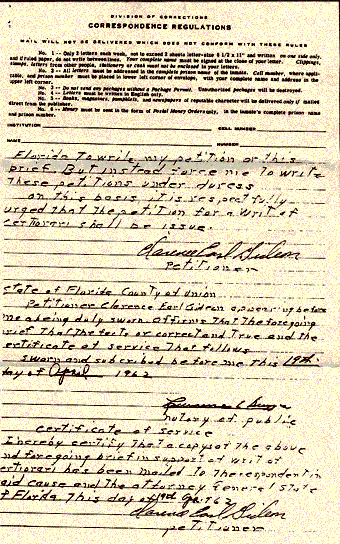 DIVISION OF CORRECTIONS
CORRESPONDENCE REGULATIONS
MAIL WILL NOT BE DELIVERED WHICH DOES NOT CONFORM WITH THESE RULES
No. 1 -- Only 2 letters each week, not to exceed 2 sheets letter-size 8 1/2 x 11" and written on one side only,
and if ruled paper, do not write between lines. Your complete name must be signed at the close of your letter. Clippings,
stamps, letters from other people, stationery or cash must not be enclosed in your letters.
No. 2 -- All letters must be addressed in the complete prison name of the inmate. Cell number, where applic-
able, and prison number must be placed in lower left corner of envelope, with your complete name and address in the
upper left corner.
No. 3 -- Do not send any packages without a Package Permit. Unauthorized packages will be destroyed.
No. 4 -- Letters must be written in English only.
No. 5 -- Books, magazines, pamphlets, and newspapers of reputable character will be delivered only if mailed
direct from the publisher.
No. 6 -- Money must be sent in the form of Postal Money Orders only, in the inmate's complete prison name
and prison number.
INSTITUTION CELL NUMBER
NAME NUMBER
Florida to write my petition or this
brief. But instead force me to write
these petitions under duress
on this basis it is respectfully
urged that the petition for a writ of
certiorari shall be issue.
Clarence Earl Gideon
Petitioner
state of Florida County of union
Petitioner Clarence Earl Gideon appearing before
me being duly sworn Affirms that the foregoing
rief That the facts or correct and True and the
ertificate of service that follows
sworn and subcribed before me this 19th.
day of April 1962
notary of public
certificate of service
I hereby certify that a copy of the above
nd foregoing brief in support of writ of
ertiorari he's been mailed to the respondent in
aid cause and the attorney General State
f Florida This day of 19th Apr 62
Clarence Earl Gideon
petitioner